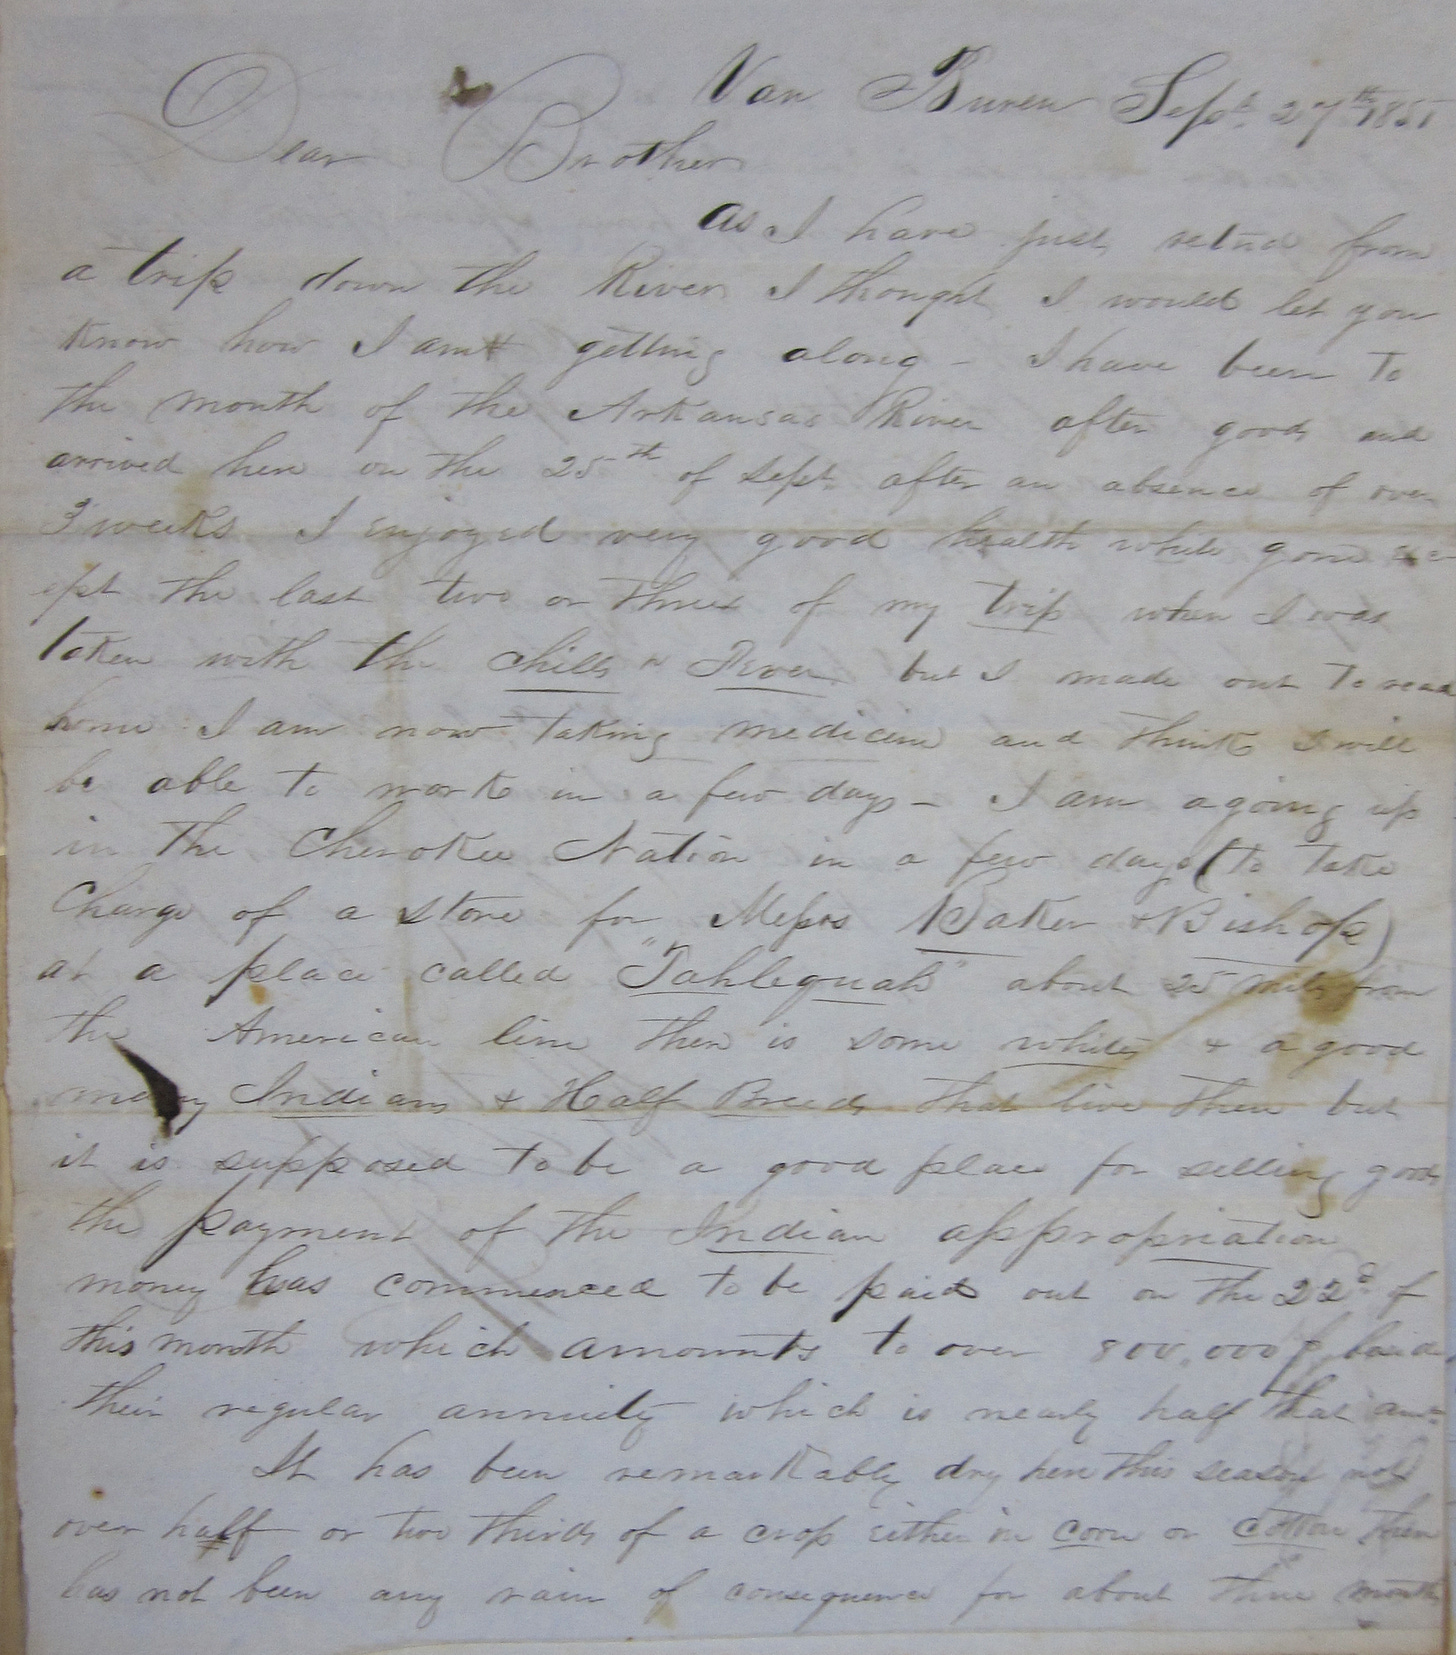 Van Buren Sept. 27th 1851
Dear Brother
As I have just retnd from
a trip down the River I thought I would let you
know how I am getting along - I have been to
the month of the Arkansas River after goods and
arrived here on the 25th of Sept. after an absence of over
3 weeks I enjoyed very good health while gone exc
ept the last two or three of my trip when I was
taken with the chills & Fever but I made out to reach
home I am now taking medicine and think I will
be able to work in a few days - I am agoing up
in the Cherokee Nation in a few days (to take
Charge of a store for Messrs Baker & Bishop)
at a place called "Tahlequah" about 25 miles from
the American line there is some whites & a good
many Indians & Half Breeds that live there but
it is supposed to be a good place for selling goods
the payment of the Indian appropriation
money has commenced to be paid out on the 22d of
this month which amounts to over 800,000$ beside
their regular annuity which is nearly half that amt
It has been remarkably dry here this season not
over half or two thirds of a crop either in corn or cotton there
has not been any rain of consequence for about three months